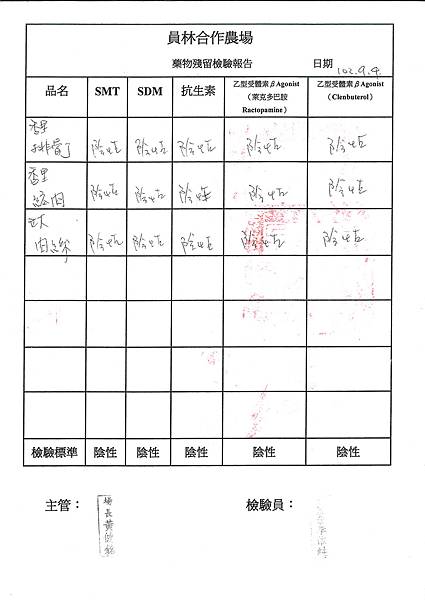 員林合作農場
藥物殘留檢驗報告 日期 102.9.4.
品名 SMT SDM 抗生素 乙型受體素βAgonist 乙型受體素βAgonist
（萊克多巴胺 （Clenbuterol）
Ractopamine）
香里
排骨丁 陰性 陰性 陰性 陰性 陰性
香里
陰性 陰性 陰性 陰性 陰性
肉絲 陰性 陰性 陰性 陰性 陰性
檢驗標準 陰性 陰性 陰性 陰性 陰性
主管： 場長黃 檢驗員：